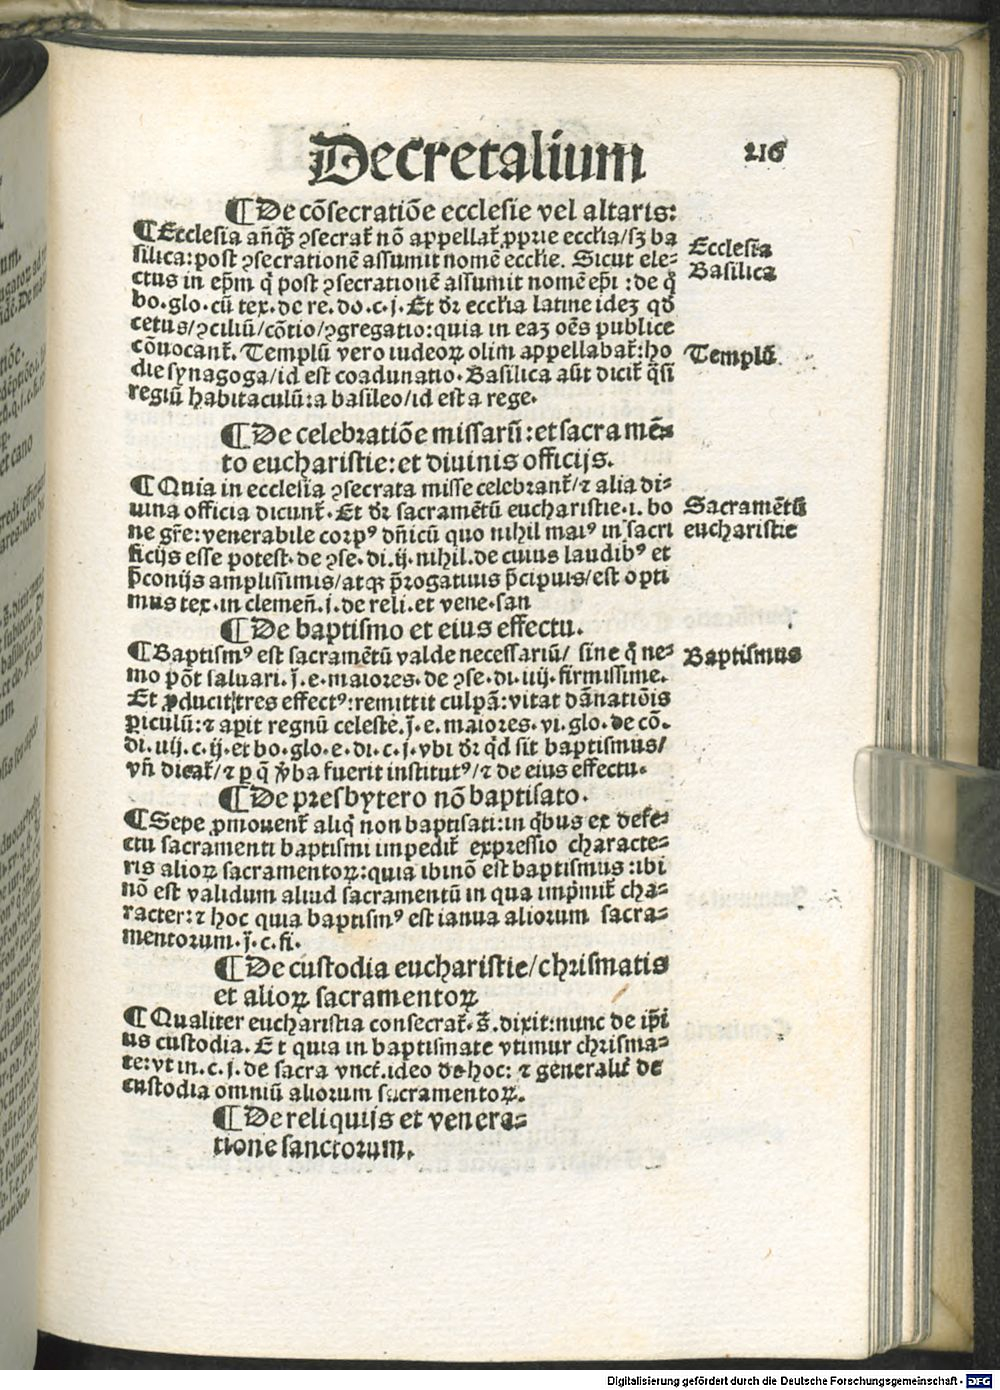 Decretalium 216
¶ De cõsecratiõe ecclesie vel altaris:
¶ Ecclesia añq̃ ꝯsecrat̃ nõ appellat̃ ꝓprie eccl̃ia/sʒ ba
silica: post ꝯsecrationẽ assumit nomẽ eccl̃ie. Sicut ele⸗
ctus in ep̃m q̃ post ꝯsecrationẽ assumit nomẽ ep̃i : de q̃
bo.glo.cũ tex.de re.do.c.j.Et dr̃ eccl̃ia latine ideʒ qđ
cetus/ꝯciliũ/cõtio/ꝯgregatio:quia in eaʒ oẽs publice
cõuocant̃. Templũ vero iudeoꝝ olim appellabat̃:ho
die synagoga/id est coadunatio. Basilica aũt dicit̃ q̃si
regiũ habitaculũ:a basileo/id est a rege.
Ecclesia
Basilica
Templũ
¶ De celebratiõe missarũ:et sacramẽ⸗
to eucharistie:et diuinis officijs.
¶ Quia in ecclesia ꝯsecrata misse celebrant̃/ꝛ alia di⸗
uina officia dicunt̃. Et dr̃ sacramẽtũ eucharistie.i. bo
ne gr̃e:venerabile corpꝰ dñicũ quo nihil maiꝰ in sacri
ficijs esse potest.de ꝯse.di.ij.nihil.de cuius laudibꝰ et
p̃conijs amplissimis/atqꝫ p̃rogatiuis p̃cipuis/est opti
mus tex.in clemeñ.j.de reli.et vene.san
Sacramẽtũ
eucharistie
¶ De baptismo et eius effectu.
¶ Baptismꝰ est sacramẽtũ valde necessariũ/ sine q̃ ne⸗
mo põt saluari.j̃.e.maiores.de ꝯse.di.iiij.firmissime.
Et ꝓducit tres effectꝰ:remittit culpã:vitat dãnatiõis
ꝑiculũ:ꝛ apit regnũ celeste.j̃.e.maiores.vi.glo.de cõ.
di.iiij.c.ij.et bo.glo.e.di.c.j.vbi dr̃ q̃d sit baptismus/
vñ dicat̃/ꝛ ꝑ q̃ ṽba fuerit institutꝰ/ꝛ de eius effectu.
Baptismus
¶ De presbytero nõ baptisato.
¶ Sepe ꝓmouent̃ aliq̃ non baptisati:in q̃bus ex defe⸗
ctu sacramenti baptismi impedit̃ expressio characte⸗
ris alioꝝ sacramentoꝝ:quia ibi nõ est baptismus :ibi
nõ est validum aliud sacramentũ in qua imp̃mit̃ cha⸗
racter:ꝛ hoc quia baptismꝰ est ianua aliorum sacra⸗
mentorum.j̃.c.fi.
¶ De custodia eucharistie/chrismatis
et alioꝝ sacramentoꝝ
¶ Qualiter eucharistia consecrat̃.s̃.dixit:nunc de ip̃i
us custodia. Et quia in baptismate vtimur chrisma⸗
te:vt in.c.j.de sacra vnct̃.ideo de hoc: ꝛ generalit̃ de
custodia omniũ aliorum sacramentoꝝ.
¶ De reliquijs et venera⸗
tione sanctorum.
Digitalisierung gefördert durch die Deutsche Forschungsgemeinschaft - DFG